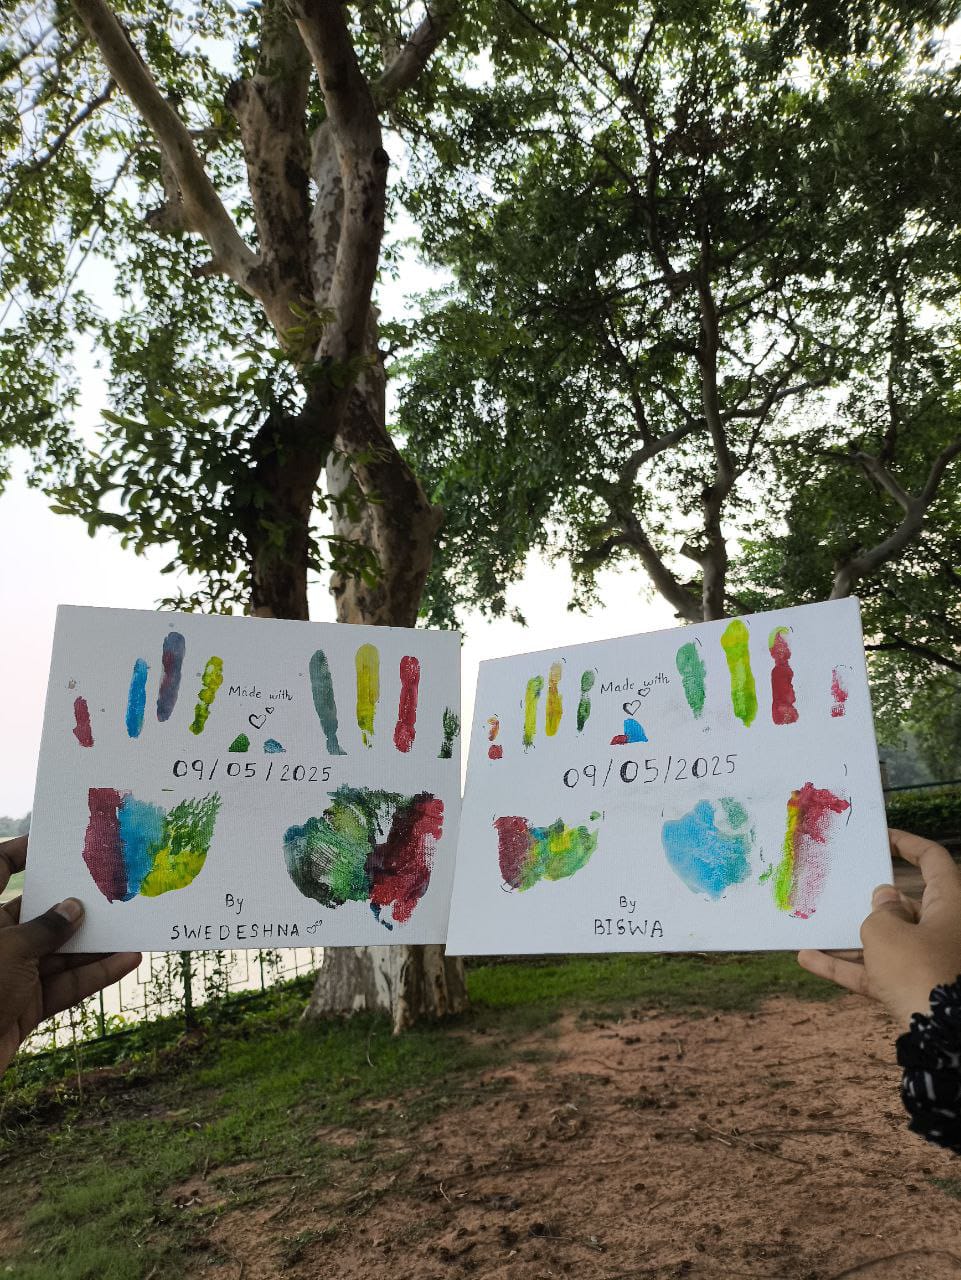 Made with
♡♡
09/05/2025
By
SWEDESHNA ♡
Made with
♡♡
09/05/2025
By
BISWA